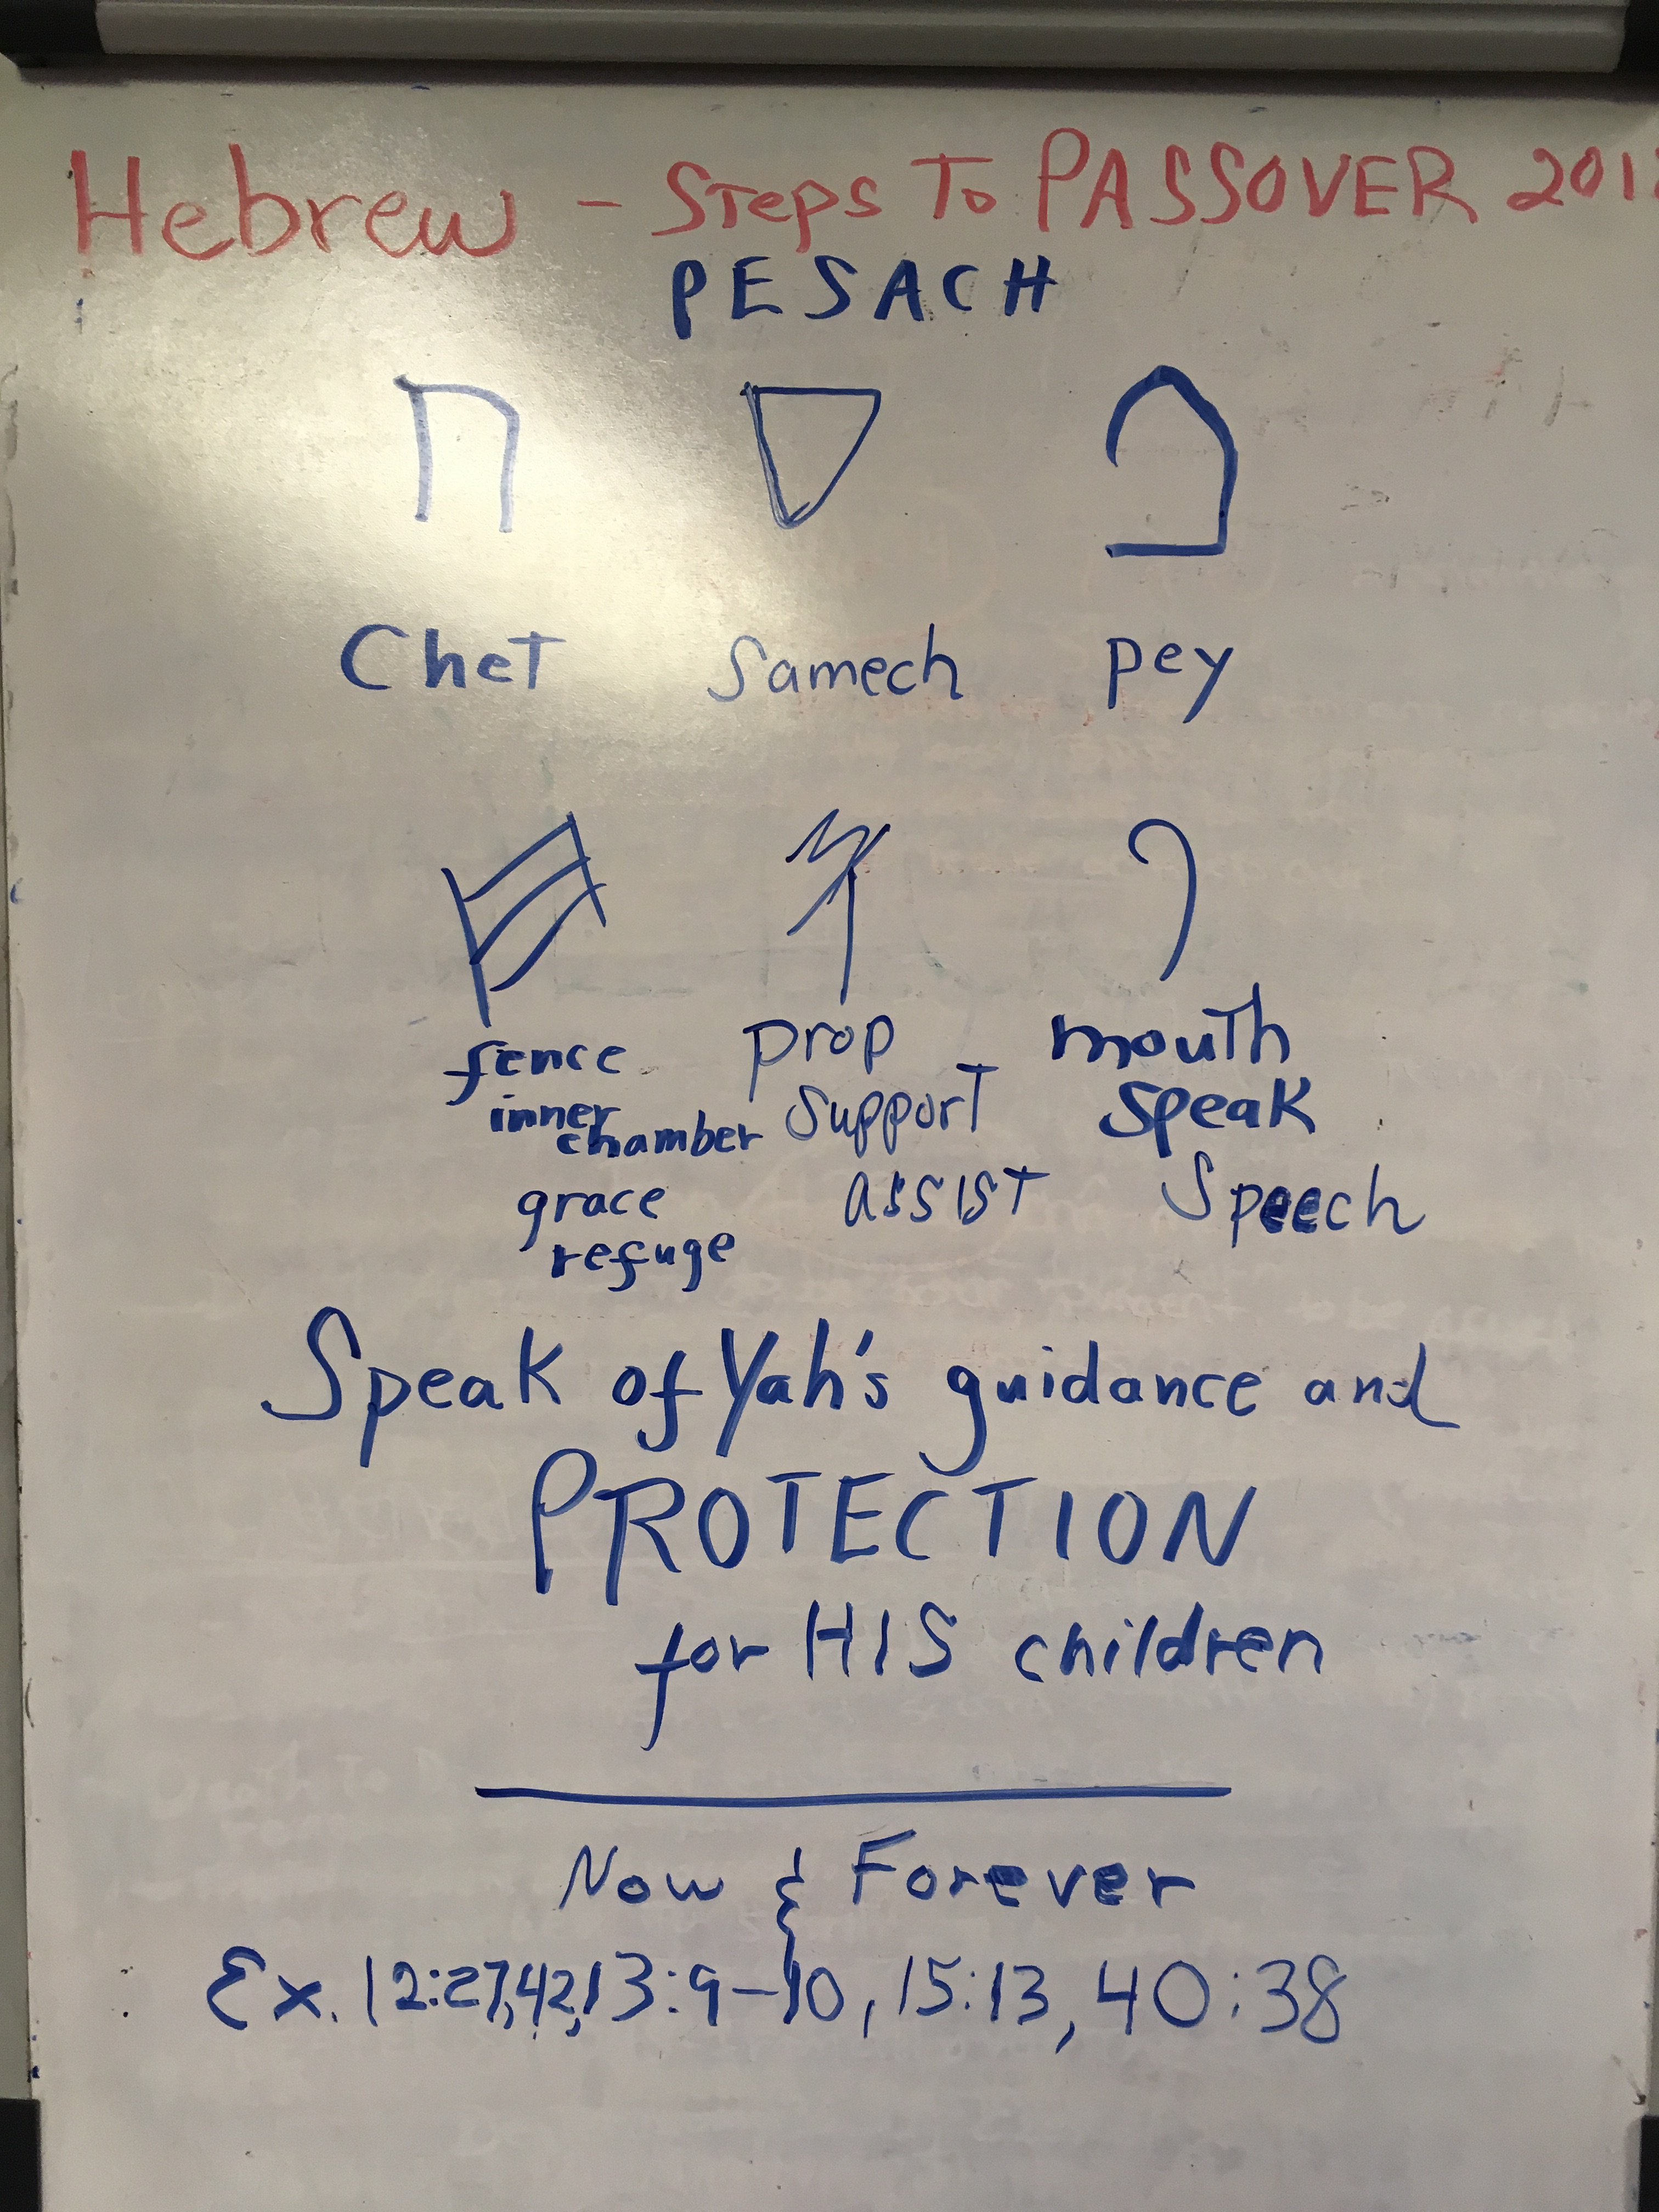 Hebrew - Steps To PASSOVER 201
PESACH
ח ס פ
Chet Samech pey
fence prop mouth
inner chamber support speak
grace assist speech
refuge
Speak of Yah's guidance and
PROTECTION
for HIS children
Now & Forever
Ex. 12:27,42,13:9-10, 15:13, 40:38